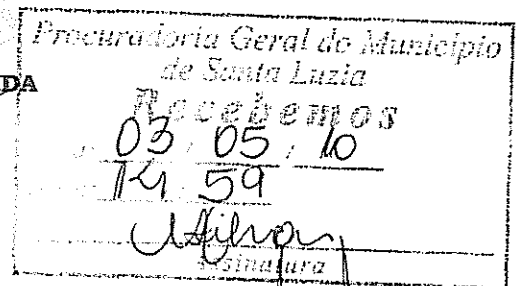 Procuradoria Geral do Município
de Santa Luzia
DA
Recebemos
03 / 05 / 10
14 : 59
Assinatura